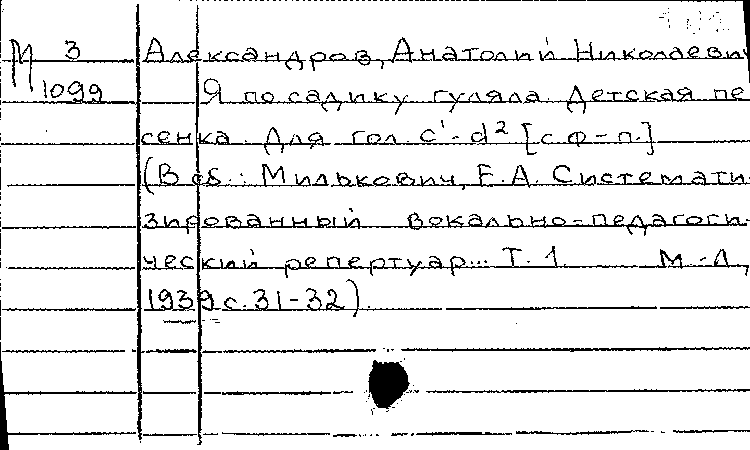 М 3 Александров, Анатолий Николаевич
1099 Я по садику гуляла. Детская пе
сенка. Для гол. c¹-d² [с ф-п.]
(В сб.: Милькович, Е.А. Системати-
зированный вокально-педагоги-
ческий репертуар... Т. 1. М.-Л.,
1939 с. 31-32).